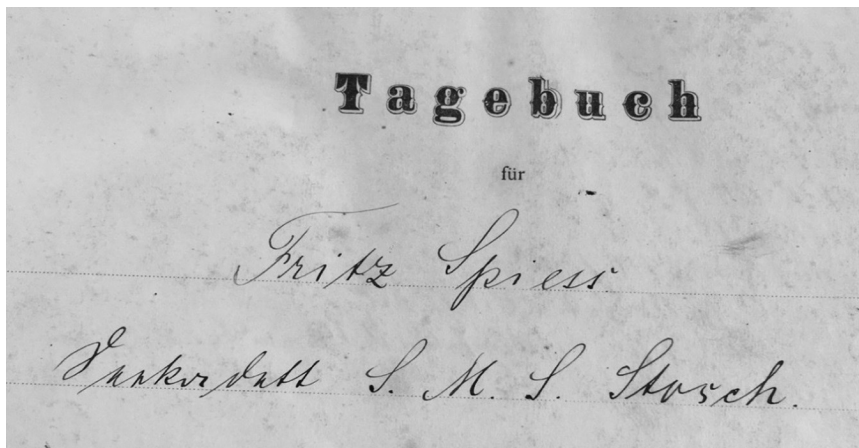 Tagebuch
für
Fritz Spiess
Seekadett S. M. S. Stosch.